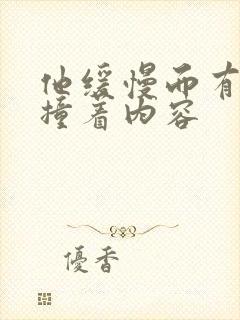 他缓慢而有
撞着内容
優香